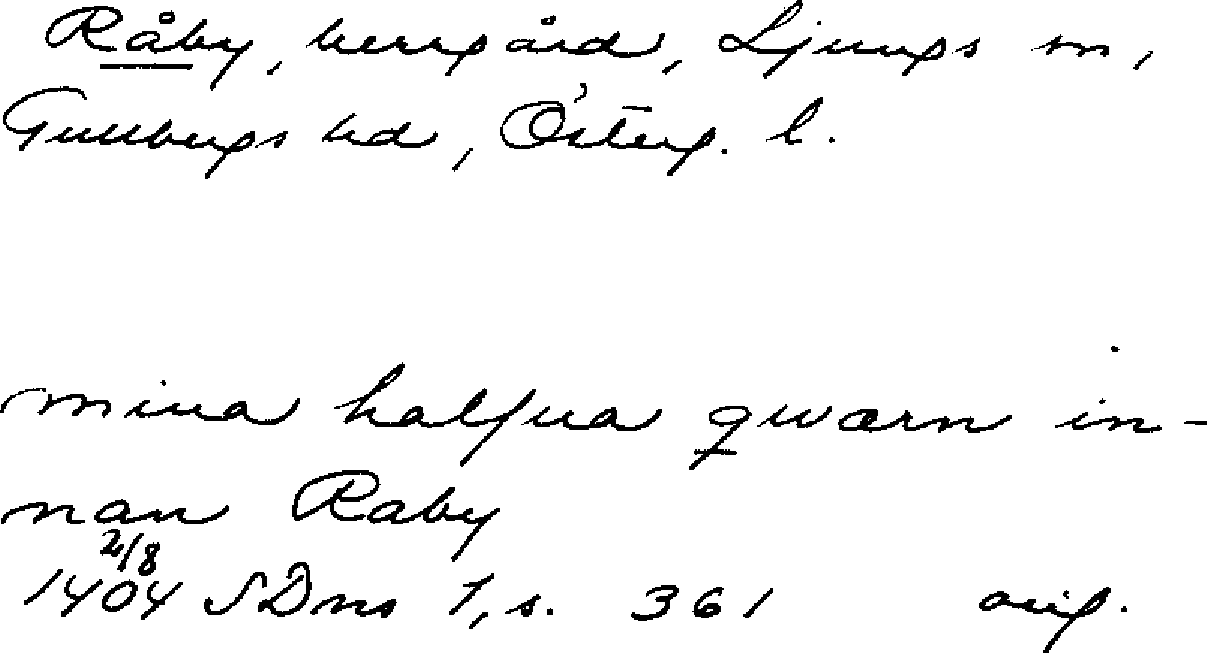 Råby, herrgård, Ljungs sn,
Gullbergs hd, Österg. l.
mina halfua qwærn in-
nan Raby
2/8
1404 SDns 1, s. 361 orig.